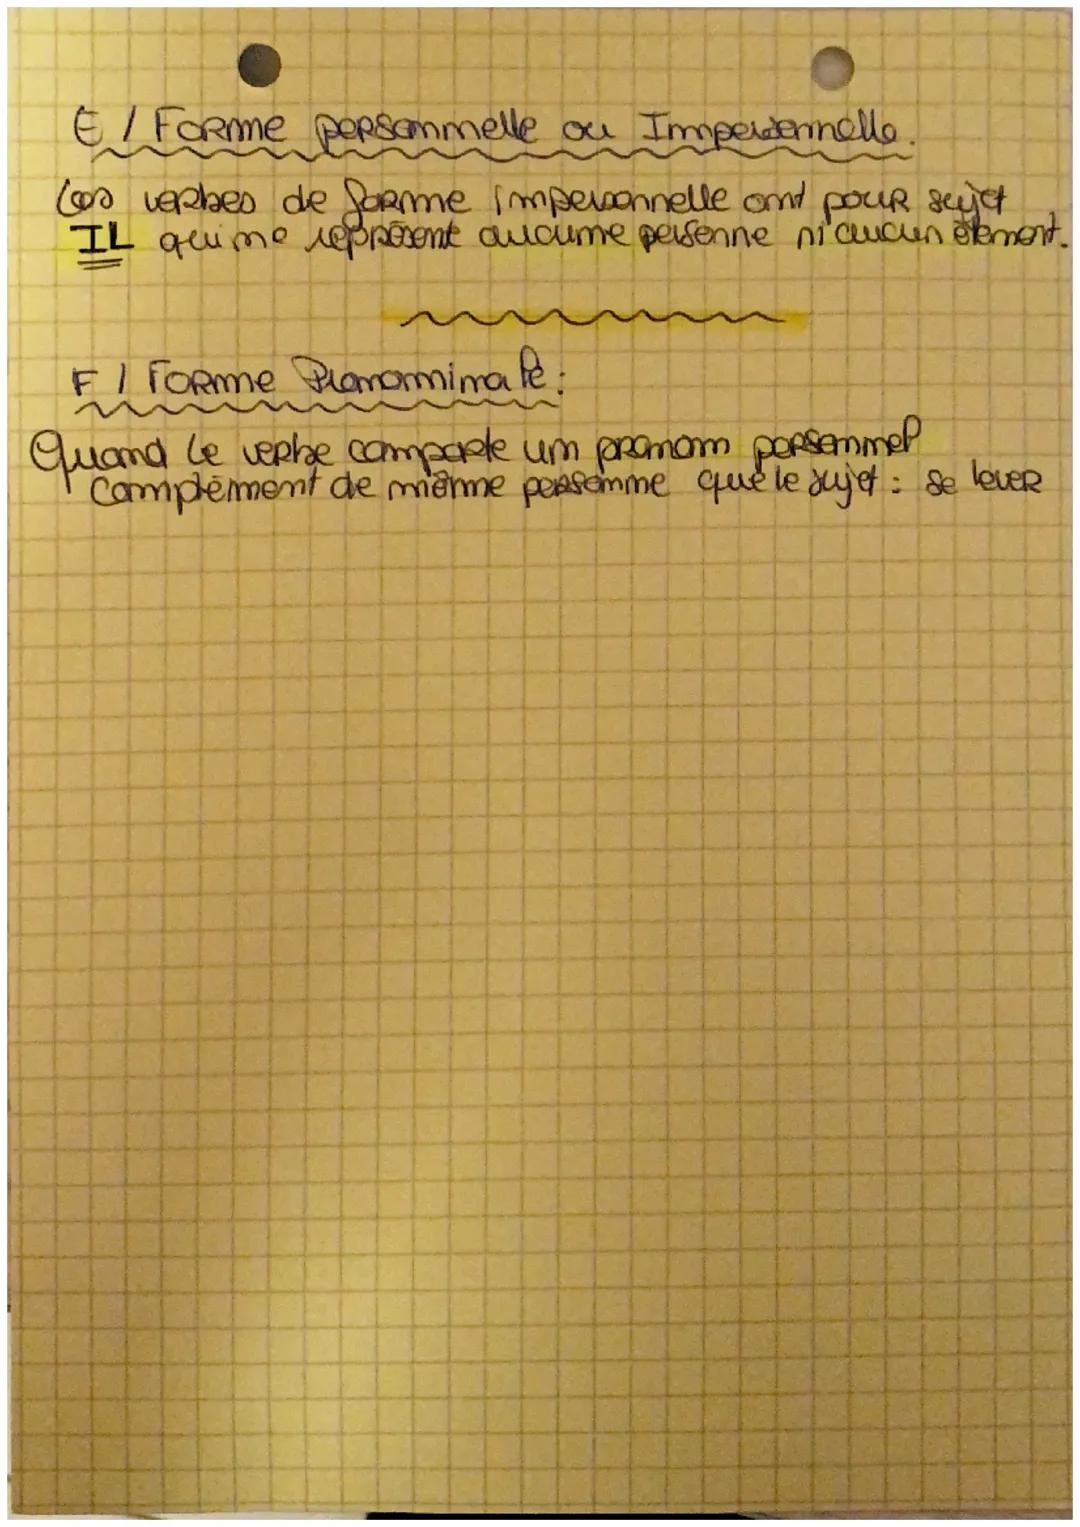 E / Forme personnelle ou Impersonnelle.
Les verbes de forme impersonnelle ont pour sujet
IL qui ne représent aucune personne ni aucun élément.
F / Forme Pronominale :
Quand le verbe comporte un pronom personnel
complément de même personne que le sujet : se lever